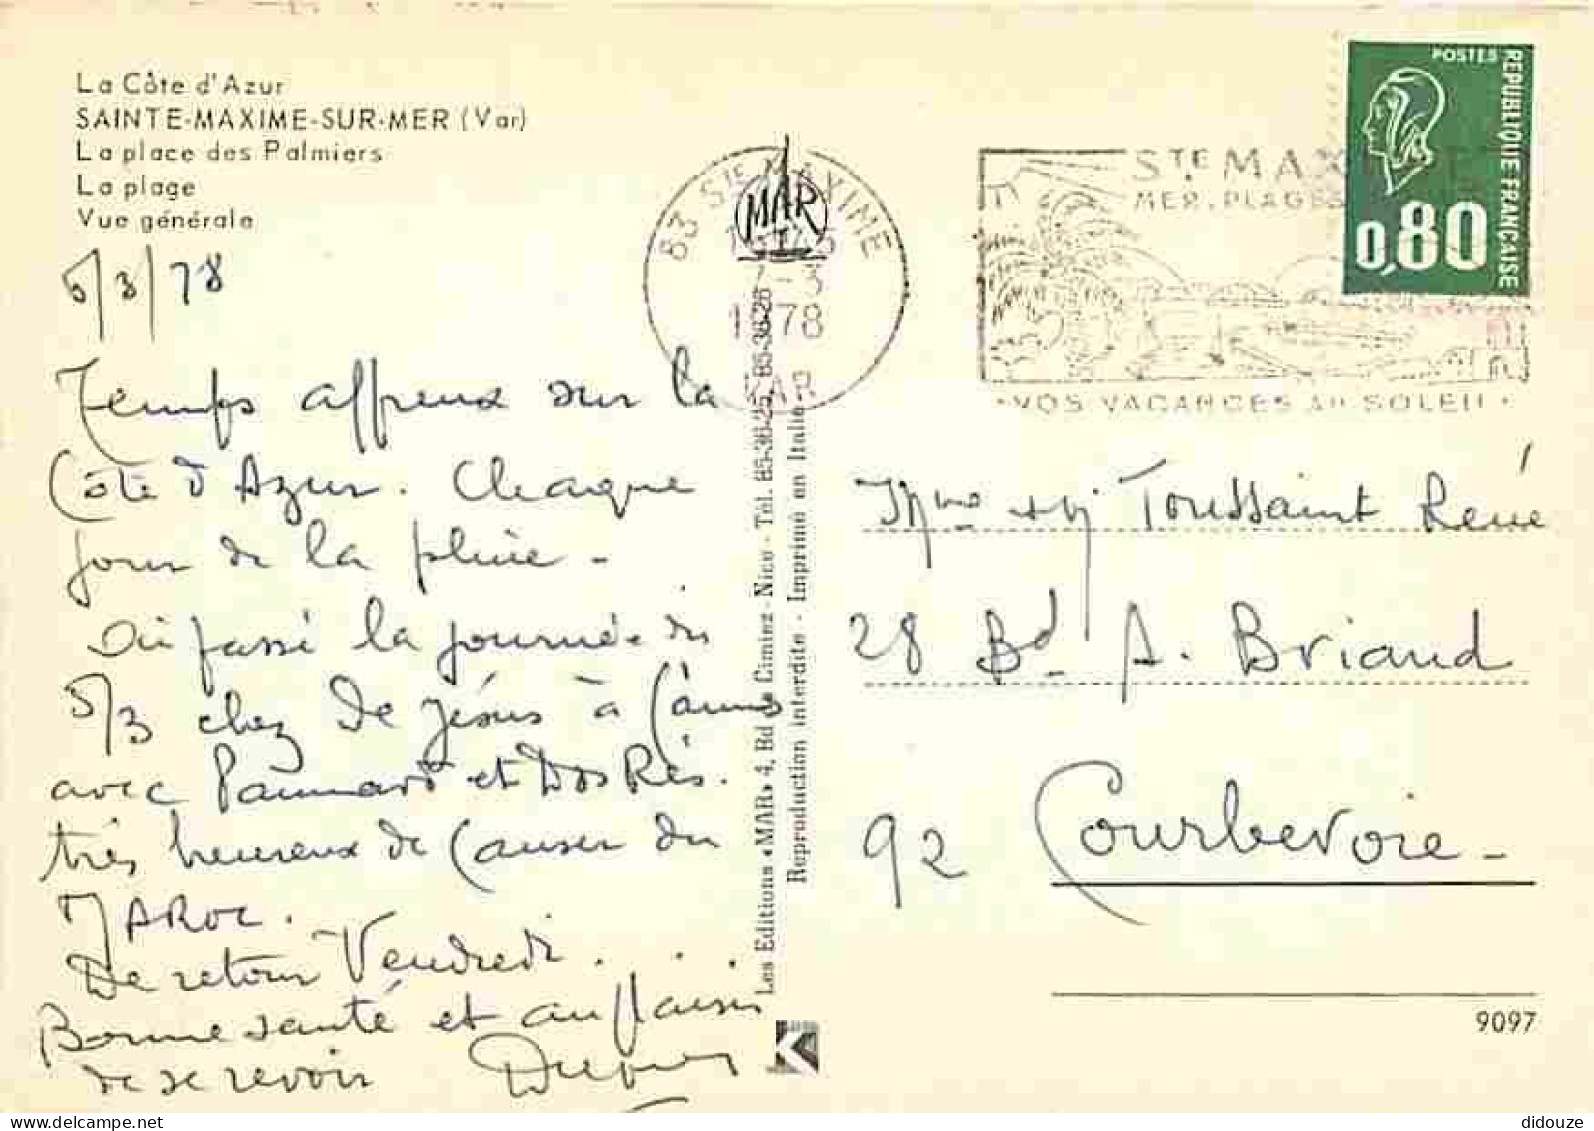 La Côte d'Azur
SAINTE-MAXIME-SUR-MER (Var)
La place des Palmiers
La plage
Vue générale
6/3/78
Temps affreux sur la
Côte d'Azur. Chaque
jour de la pluie -
Ai passé la journée du
5/3 chez De Jésus à Cannes
avec et
très heureux de causer du
MAROC.
De retour Vendredi.
Bonne santé et au plaisir
de se revoir
83 STE MAXIME
7-3
1978
VAR
MAR
STE MAX
MER, PLAGES
VOS VACANCES AU SOLEIL
POSTES
REPUBLIQUE FRANÇAISE
0,80
Les Editions «MAR» 4, Bd de Cimiez - Nice - Tél. 85-36-25, 85-36-26
Reproduction interdite - Imprimé en Italie
K
Mme Toussaint René
28 Bd A. Briand
92 Courbevoie -
9097
didouze